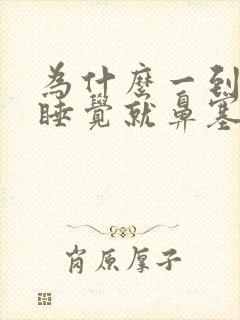 為什麼一到
睡覺就鼻塞
肖原厚子